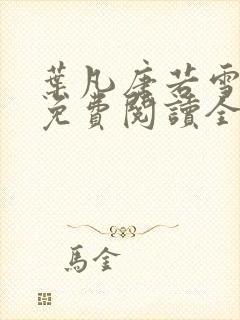 葉凡唐若雪
免費閱讀全
馬金